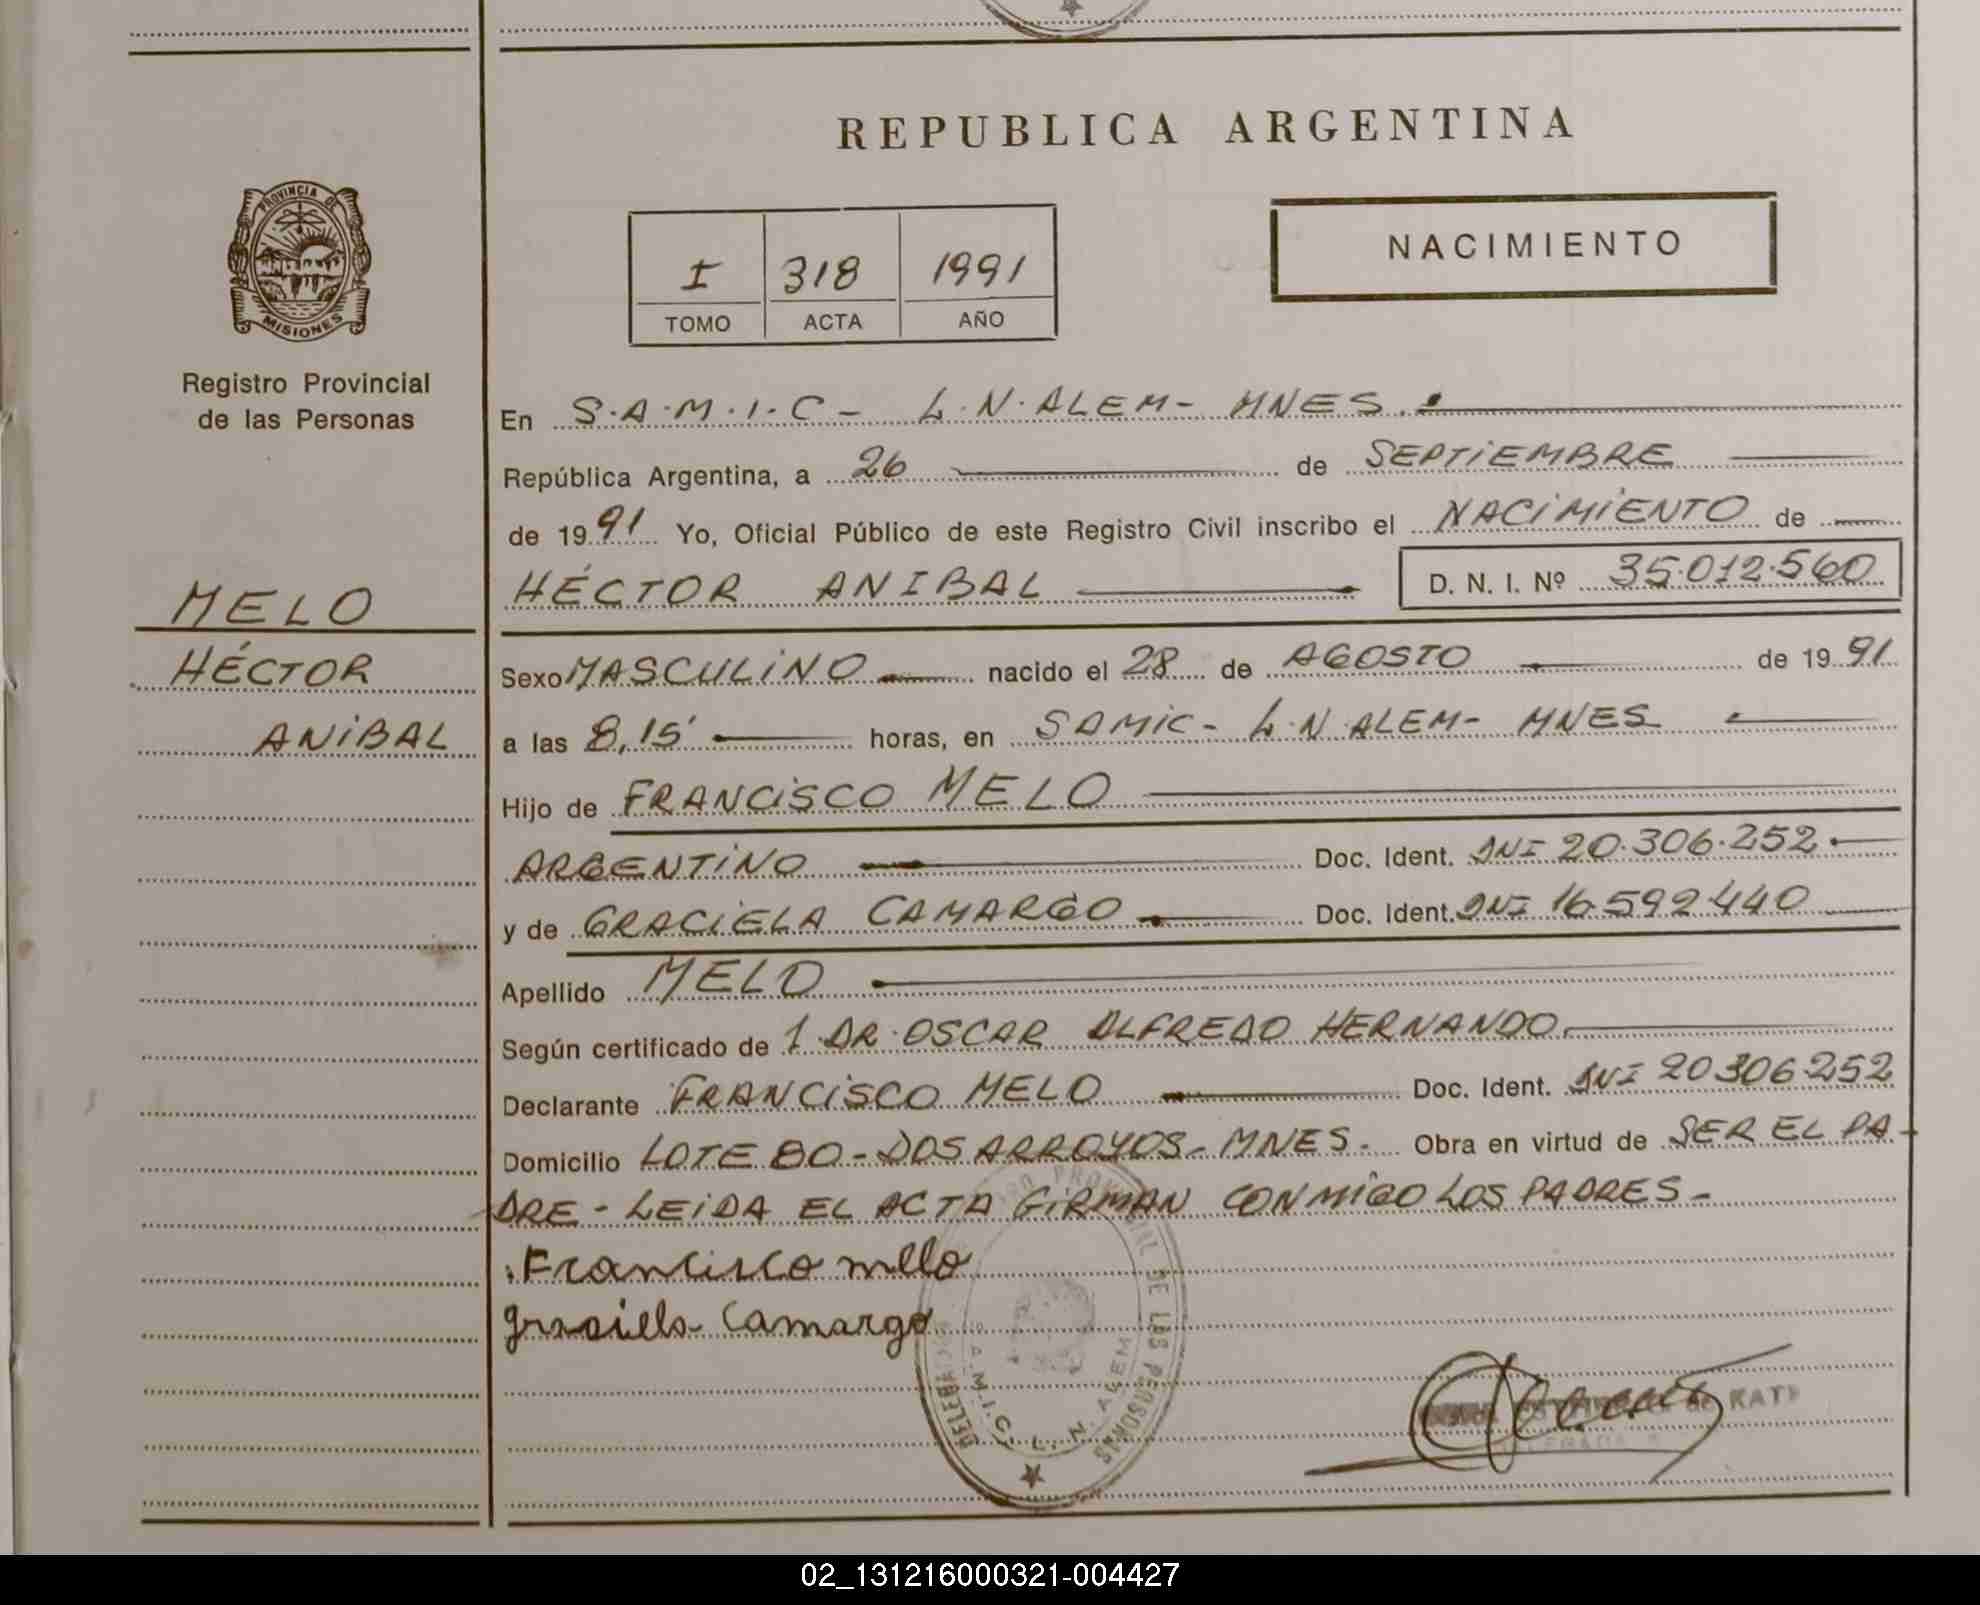 REPUBLICA ARGENTINA
PROVINCIA DE
MISIONES
Registro Provincial
de las Personas
I 318 1991
TOMO ACTA AÑO
NACIMIENTO
En S.A.M.I.C - L.N.ALEM - MNES.
República Argentina, a 26 de SEPTiEMBRE
de 1991 Yo, Oficial Público de este Registro Civil inscribo el NACiMiENTO de
HÉCTOR ANIBAL D. N. I. Nº 35.012.560
MELO
HÉCTOR
ANiBAL
Sexo MASCULiNO nacido el 28 de AGOSTO de 1991
a las 8,15' horas, en SAMiC - L.N ALEM - MNES
Hijo de FRANCiSCO MELO
ARGENTiNO Doc. Ident. DNI 20.306.252.
y de GRACiELA CAMARGO Doc. Ident. DNI 16.592.440
Apellido MELO
Según certificado de 1 DR. OSCAR ALFREDO HERNANDO.
Declarante FRANCiSCO MELO Doc. Ident. DNI 20 306.252
Domicilio LOTE 80 - DOS ARROYOS - MNES - Obra en virtud de SER EL PA-
DRE - LEiDA EL ACTA GiRMAN CONMiGO LOS PADRES -
Francisco mello
Graciella Camargo
DE LAS PERSONAS
S.A.M.I.C. L. N. ALEM
02_131216000321-004427